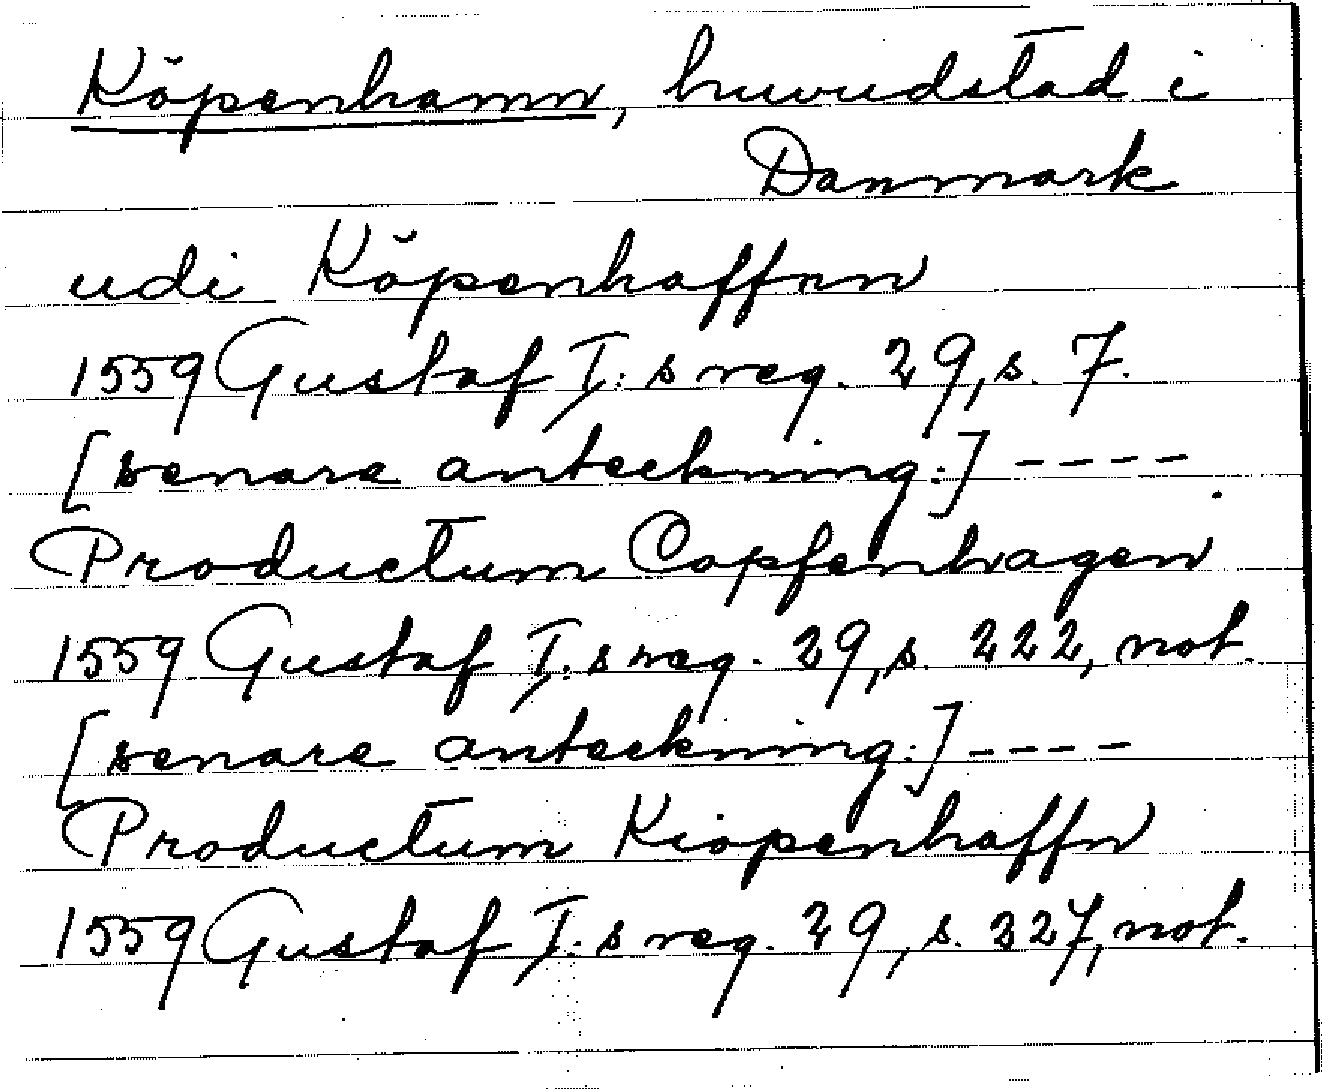 Köpenhamn, huvudstad i
Danmark
udi Köpenhaffnn
1559 Gustaf I:s reg. 29, s. 7.
[senare anteckning:] ----
Productum Copfenhagen
1559 Gustaf I:s reg. 29, s. 222, not.
[senare anteckning:] ----
Productum Kiopenhaffn
1559 Gustaf I:s reg. 29, s. 327, not.